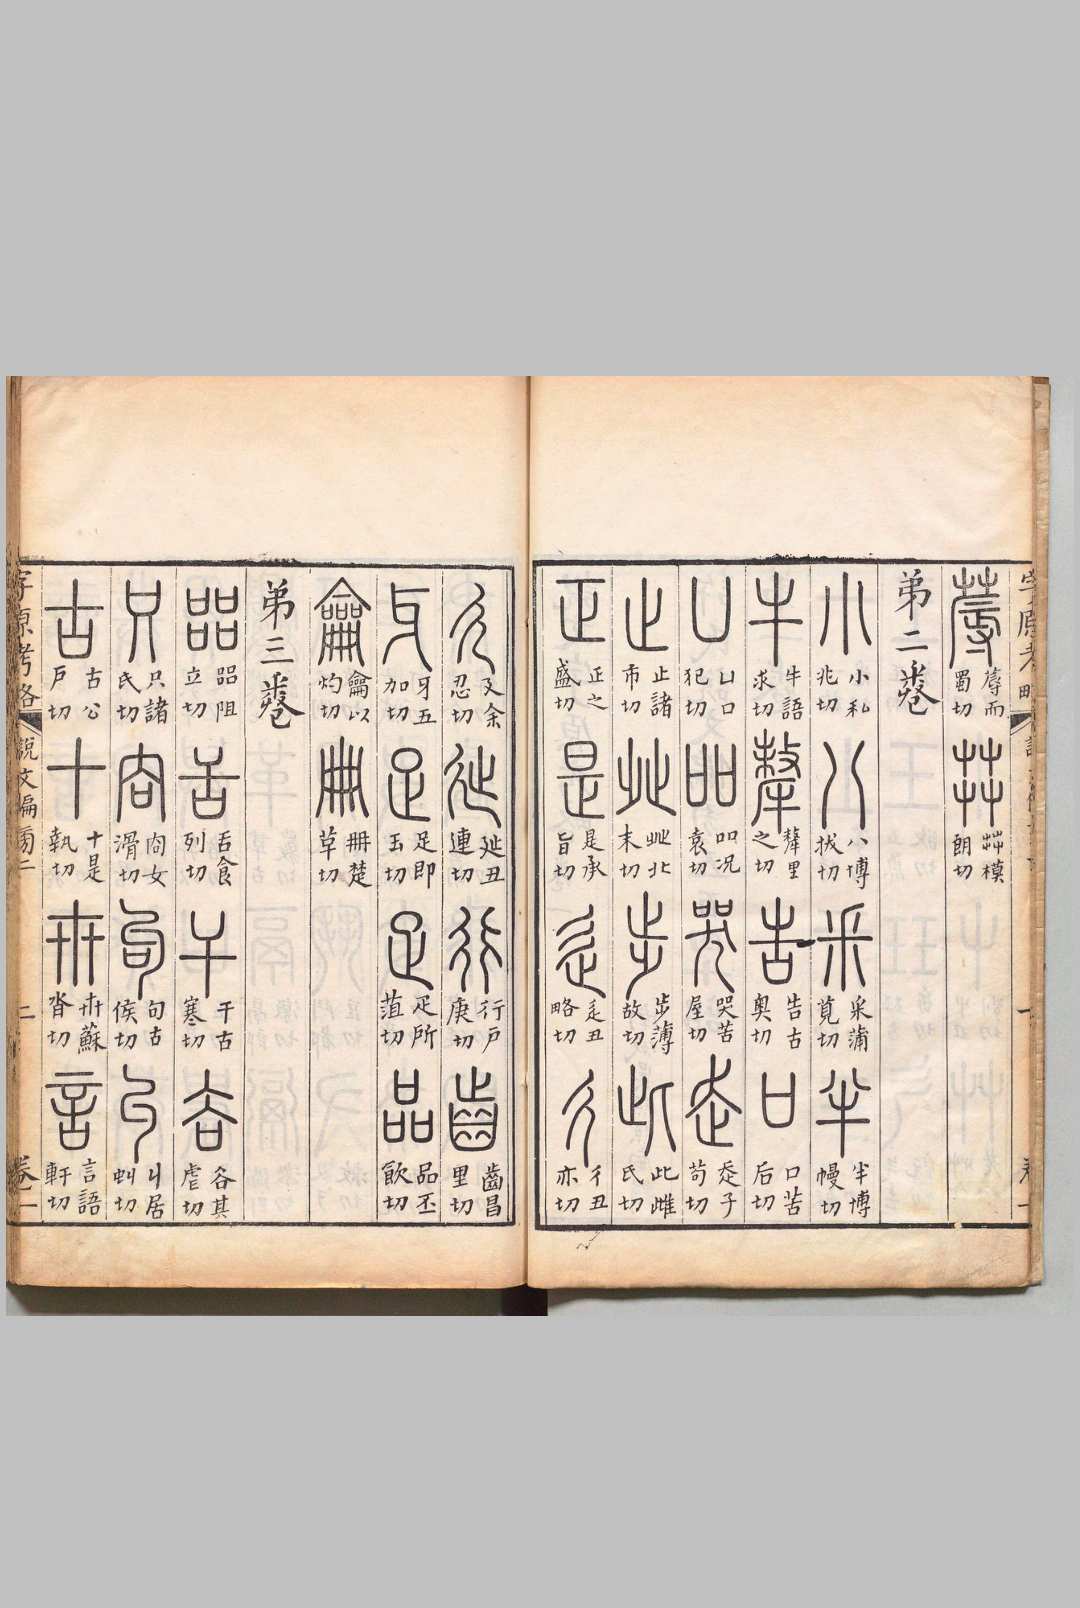 蓐而蜀切
茻模朗切
第二卷
小私兆切
八博拔切
釆蒲莧切
半博幔切
牛語求切
犛里之切
告古奧切
口苦后切
凵口犯切
吅况袁切
哭苦屋切
走子苟切
止諸市切
癶北末切
步薄故切
此雌氏切
正之盛切
是承旨切
辵丑略切
彳丑亦切
廴余忍切
㢟丑連切
行戶庚切
齒昌里切
牙五加切
足即玉切
疋所菹切
品丕飲切
龠以灼切
冊楚草切
第三卷
㗊阻立切
舌食列切
干古寒切
谷其虐切
只諸氏切
㕯女滑切
句古侯切
丩居虯切
古公戶切
十是執切
卅蘇沓切
言語軒切
字原考略
說文偏旁二
二
卷一